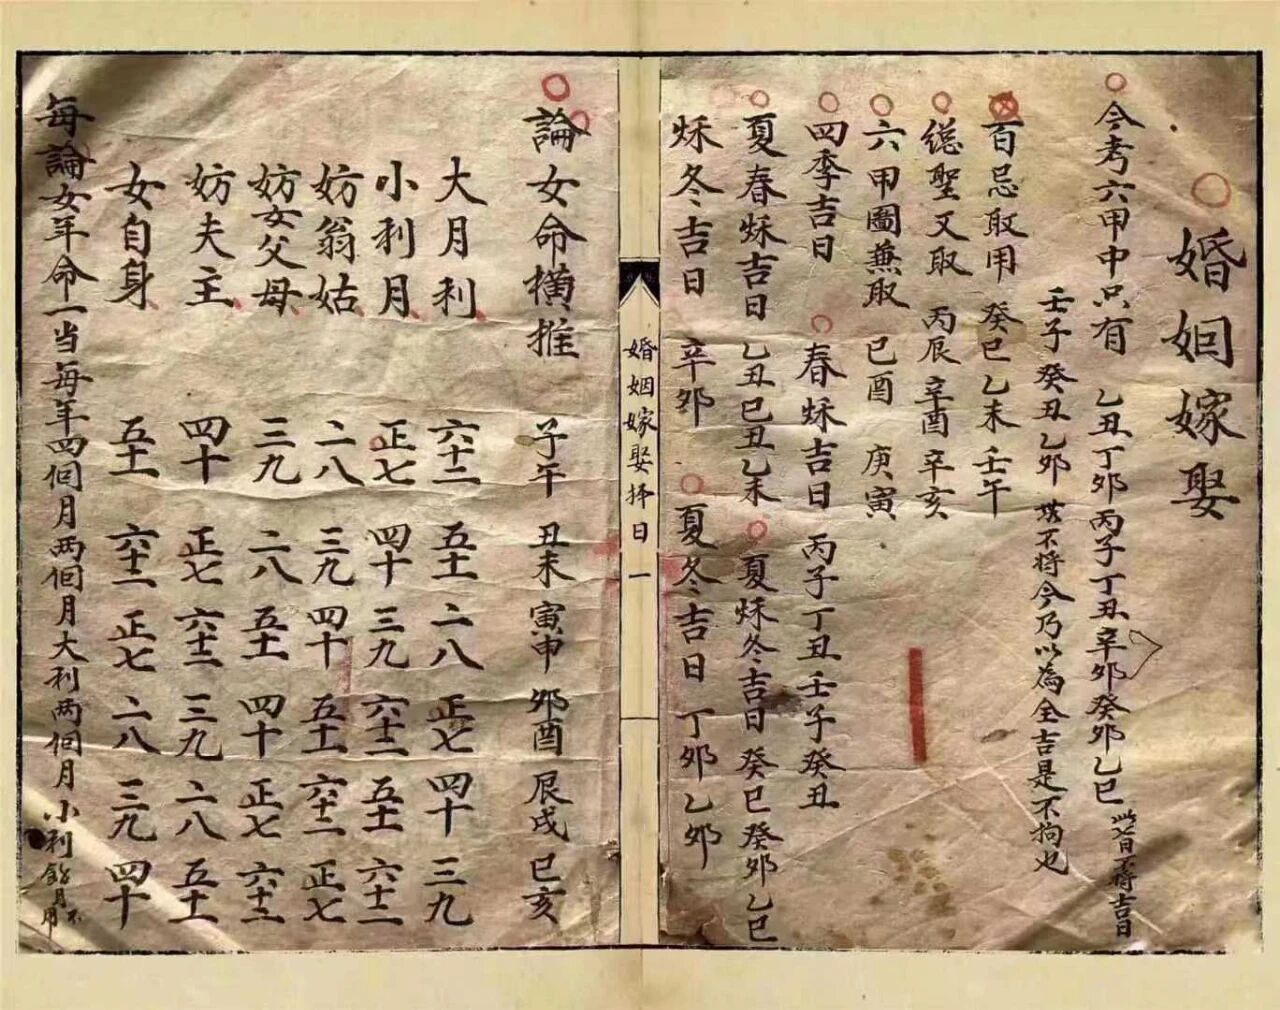 婚姻嫁娶
今考六甲中只有　乙丑丁夘丙子丁丑辛夘癸夘乙巳 以七日不將吉日
壬子癸丑乙夘 不將今乃以為全吉是不拘也
百忌取用　癸巳乙未　壬午
緫聖又取　丙辰辛酉辛亥
六甲圖兼取　已酉　庚寅
四季吉日　春秌吉日　丙子丁丑壬子癸丑
夏春秌吉日　乙丑巳丑乙未　夏秌冬吉日　癸巳癸夘乙巳
秌冬吉日　辛夘　夏冬吉日　丁夘乙夘
婚姻嫁娶择日　一
論女命橫推　子午　丑未　寅申　夘酉　辰戌　巳亥
大月利　六十二　五十一　二八　正七　四十　三九
小利月　正七　四十　三九　六十二　五十一　六十二
妨翁姑　二八　三九　四十　五十一　六十二　正七
妨女父母　三九　二八　五十一　四十　正七　六十二
妨夫主　四十　正七　六十二　三九　二八　五十一
女自身　五十一　六十二　正七　二八　三九　四十
每論女年命一当每年四個月两個月大利两個月小利餘月不用